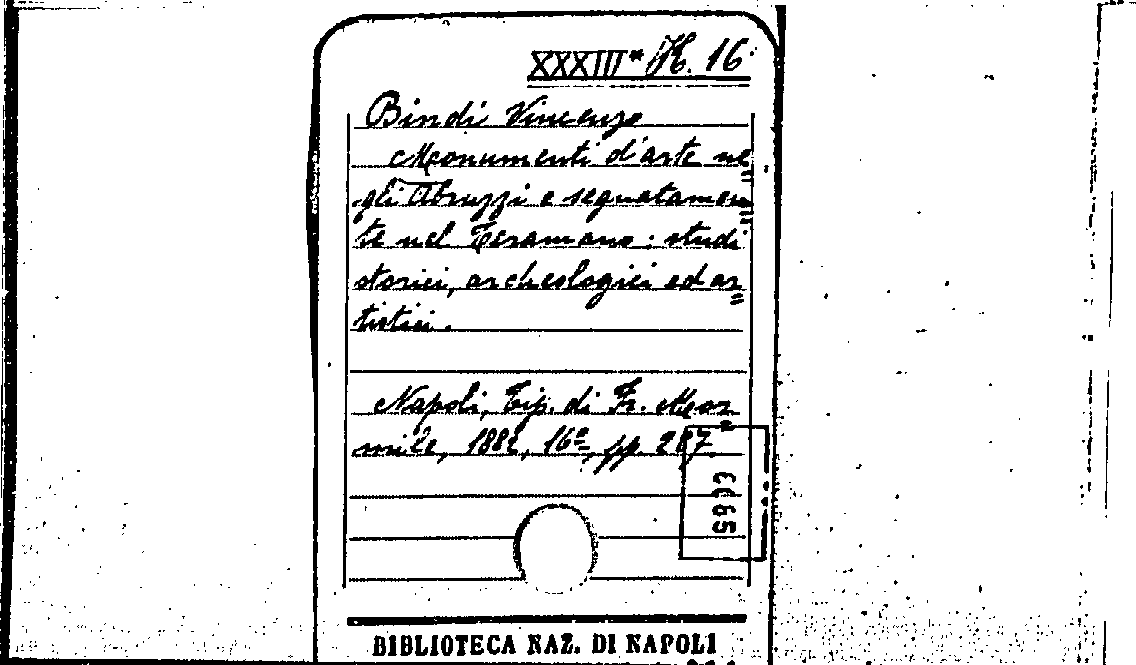 XXXIII* K. 16
Bindi Vincenzo
Monumenti d'arte ne=
gli Abruzzi e segnatamen=
te nel Teramano: studi
storici, archeologici ed ar=
tistici.
Napoli, Tip. di Fr. Mor=
mile, 1882, 16º, pp. 287.
BIBLIOTECA NAZ. DI NAPOLI